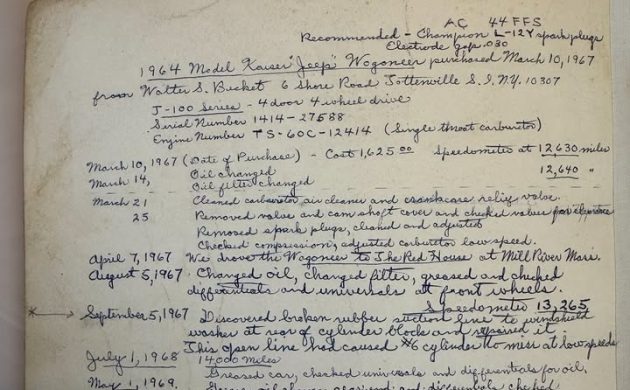 AC 44 FFS
Recommended - Champion L-12Y spark plugs
Electrode gap .030
1964 Model Kaiser "Jeep" Wogoneer purchased March 10, 1967
from Walter S. Becket 6 Shore Road Tottenville S.I. N.Y. 10307
J-100 Series - 4 door 4 wheel drive
Serial Number 1414-27588
Engine Number TS-60C-12414 (Single throat carburetor)
March 10, 1967 (Date of Purchase) - Cost 1,625.00 Speedometer at 12,630 miles
March 14, Oil changed 12,640 "
Oil filter changed
March 21 Cleaned carburetor air cleaner and crankcase relief valve.
25 Removed valve and cam shaft cover and checked valves for clearance
Removed spark plugs, cleaned and adjusted
Checked compression, adjusted carburetor low speed.
April 7, 1967 We drove the Wogoneer to The Red House at Mill River Mass.
August 5, 1967 Changed oil, changed filter, greased and checked
differentials and universals at front wheels.
Speedometer 13,265
September 5, 1967 Discovered broken rubber suction line to windshield
washer at rear of cylinder block and repaired it.
This open line had caused #6 cylinder to miss at low speeds
July 1, 1968 14000 miles
Greased car, checked universals and differentials for oil.
May 1, 1969.